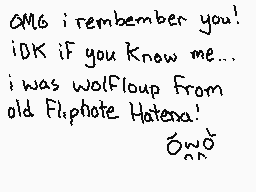 OMG i rembember you!
iDK iF you know me...
i was wolfloup from
old Flipnote Hatena!
ÓwÒ